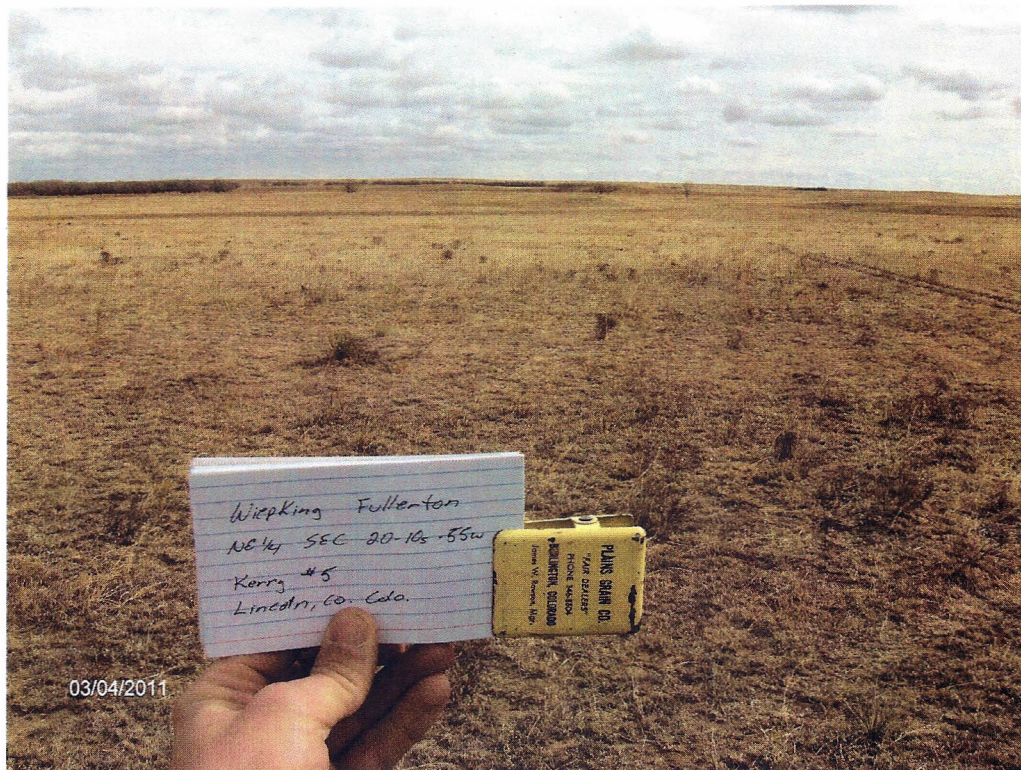 WiepKing Fullerton
NE 1/4 SEC 20-10s-55w
Kerry #5
Lincoln, Co. Colo.
PLAINS GRAIN CO.
"FAIR DEALERS"
PHONE
BURLINGTON, COLORADO
James W. Mgr.
03/04/2011